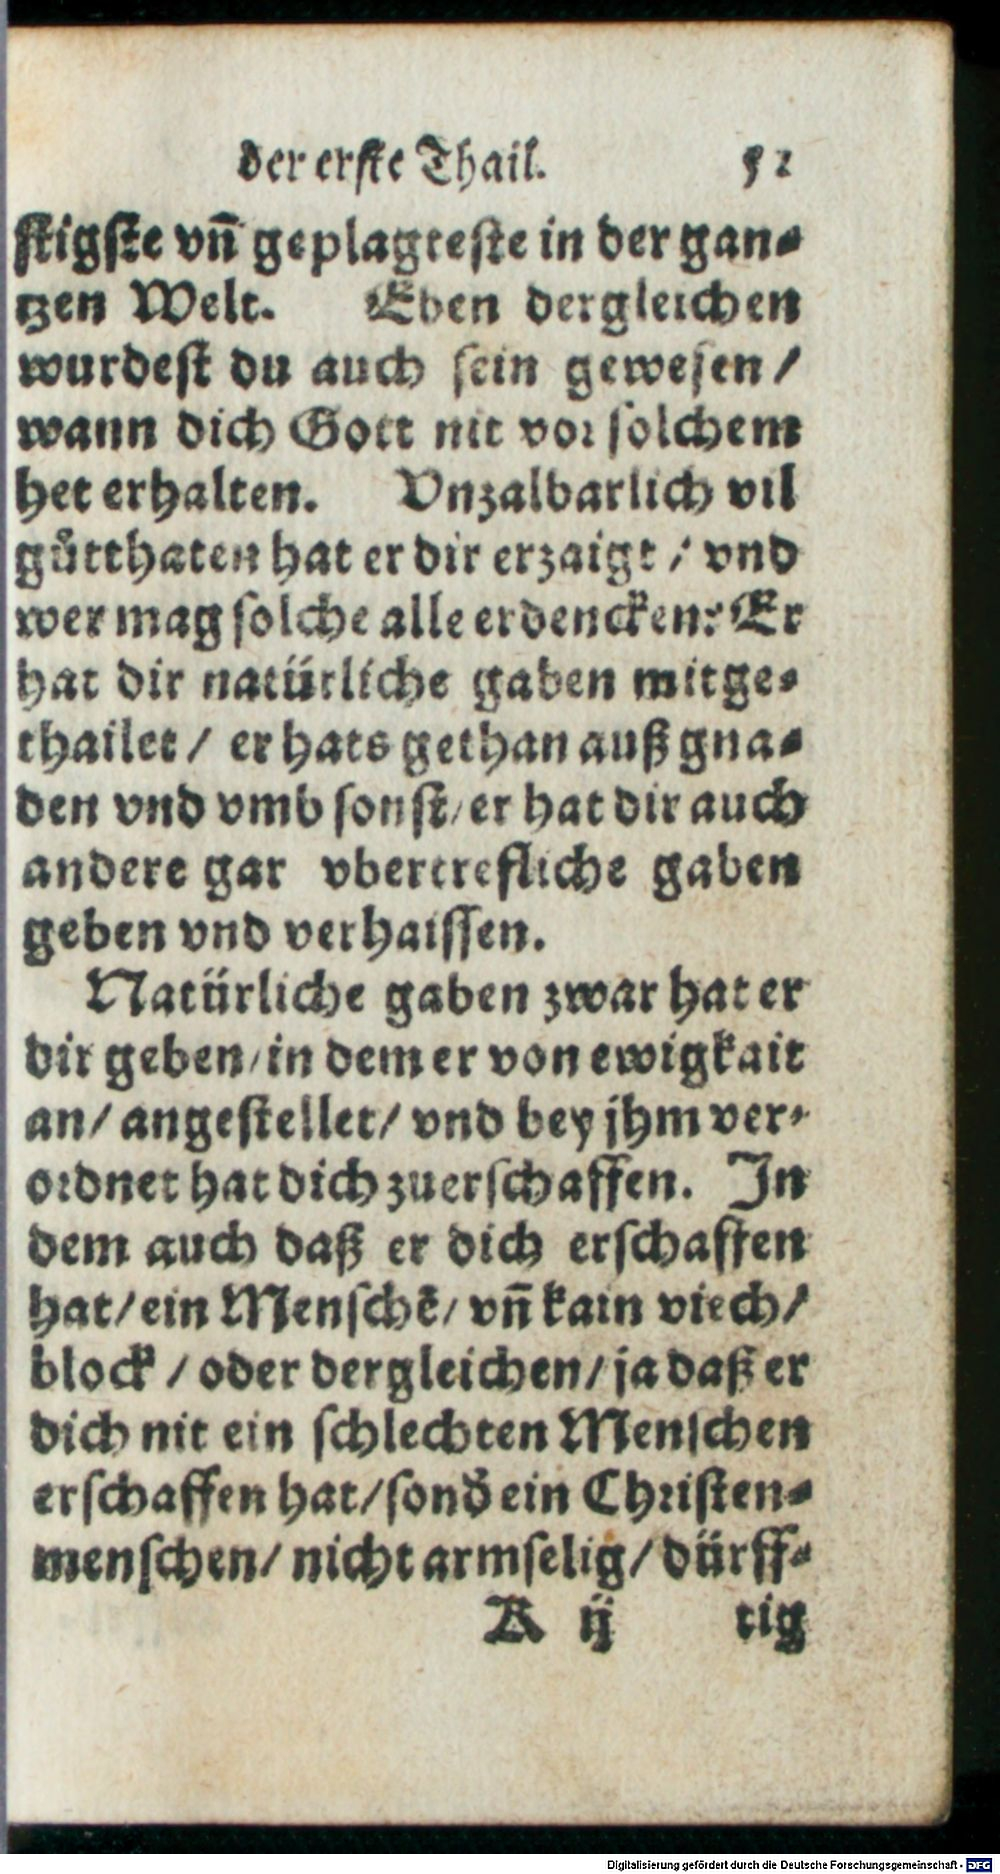 der erste Thail. 52
stigste vñ geplagteste in der gan⸗
tzen Welt. Eben dergleichen
wurdest du auch sein gewesen /
wann dich Gott nit vor solchem
het erhalten. Vnzalbarlich vil
gůtthaten hat er dir erzaigt / vnd
wer mag solche alle erdencken? Er
hat dir natürliche gaben mitge⸗
thailet / er hats gethan auß gna⸗
den vnd vmb sonst / er hat dir auch
andere gar vbertrefliche gaben
geben vnd verhaissen.
Natürliche gaben zwar hat er
dir geben / in dem er von ewigkait
an / angestellet / vnd bey jhm ver⸗
ordnet hat dich zuerschaffen. In
dem auch daß er dich erschaffen
hat / ein Menschē / vñ kain viech /
block / oder dergleichen / ja daß er
dich nit ein schlechten Menschen
erschaffen hat / sond̄ ein Christen⸗
menschen / nicht armselig / dürff⸗
K ij tig
Digitalisierung gefördert durch die Deutsche Forschungsgemeinschaft - DFG